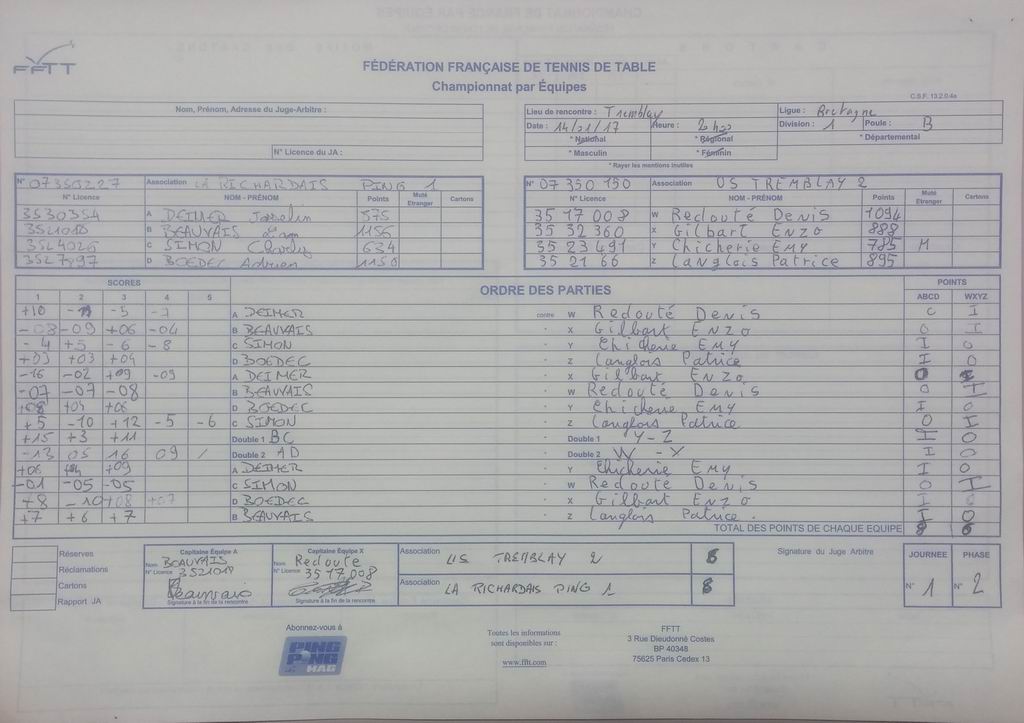 FFTT
FÉDÉRATION FRANÇAISE DE TENNIS DE TABLE
Championnat par Équipes
C.S.F. 13.2.0.4a
Nom, Prénom, Adresse du Juge-Arbitre :
N° Licence du JA :
Lieu de rencontre : Tremblay Ligue : Bretagne
Date : 14/01/17 Heure : 20h00 Division : 1 Poule : B
* National * Régional * Départemental
* Masculin * Féminin
* Rayer les mentions inutiles
N° 07350227 Association LA RICHARDAIS PING 1
N° Licence NOM - PRÉNOM Points Muté Etranger Cartons
3530354 A DEIMER Josselin 575
3521010 B BEAUVAIS 1156
3524026 C SIMON Charly 634
3527897 D BOEDEC Adrien 1150
N° 07 350 150 Association US TREMBLAY 2
N° Licence NOM - PRÉNOM Points Muté Etranger Cartons
35 17 008 W Redouté Denis 1094
35 32 360 X Gilbart Enzo 888
35 23 491 Y Chicherie EMY 785 M
35 21 66 Z Langlois Patrice 895
SCORES ORDRE DES PARTIES POINTS
1 2 3 4 5 ABCD WXYZ
+10 -5 -7 A DEIMER contre W Redouté Denis I
-08 -09 +06 -04 B BEAUVAIS - X Gilbart Enzo O I
-4 +5 -6 -8 C SIMON - Y Chicherie EMY I O
+03 +03 +04 D BOEDEC - Z Langlois Patrice I O
-16 -02 +09 -09 A DEIMER - X Gilbart Enzo O I
-07 -07 -08 B BEAUVAIS - W Redouté Denis O I
+08 +04 +06 D BOEDEC - Y Chicherie EMY I O
+5 -10 +12 -5 -6 C SIMON - Z Langlois Patrice O I
+15 +3 +11 Double 1 BC - Double 1 Y-Z I O
-13 05 16 09 / Double 2 AD - Double 2 W-X I O
+06 +04 +09 A DEIMER - Y Chicherie Emy I O
-01 -05 -05 C SIMON - W Redouté Denis O I
+8 -10 +08 +07 D BOEDEC - X Gilbart Enzo I O
+7 +6 +7 B BEAUVAIS - Z Langlois Patrice . I O
TOTAL DES POINTS DE CHAQUE EQUIPE 8 6
Réserves
Réclamations
Cartons
Rapport JA
Capitaine Équipe A
Nom BEAUVAIS
N° Licence 3521010
Beauvais
Signature à la fin de la rencontre
Capitaine Équipe X
Nom Redouté
N° Licence 3517008
Signature à la fin de la rencontre
Association US TREMBLAY 2 6
Association LA RICHARDAIS PING 1 8
Signature du Juge Arbitre
JOURNEE PHASE
N° 1 N° 2
Abonnez-vous à
PING PONG MAG
Toutes les informations
sont disponibles sur :
www.fftt.com
FFTT
3 Rue Dieudonné Costes
BP 40348
75625 Paris Cedex 13